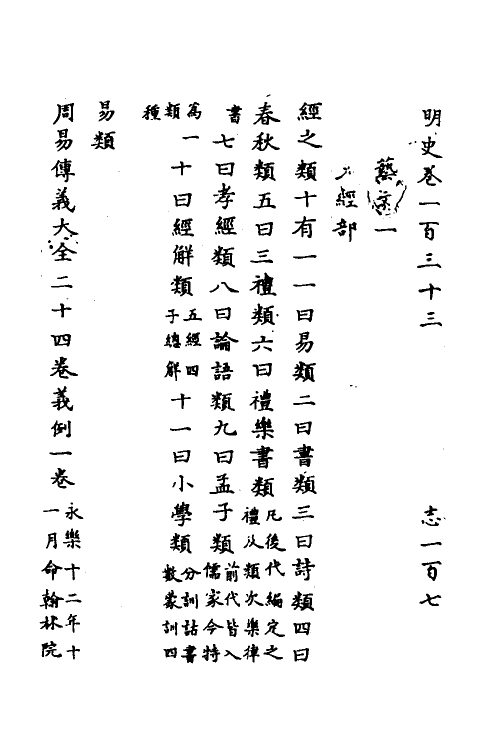 明史卷一百三十三 志一百七
藝文一
經部
經之類十有一一曰易類二曰書類三曰詩類四曰
春秋類五曰三禮類六曰禮樂書類凡後代編定之禮从類次樂律
書七曰孝經類八曰論語類九曰孟子類前代皆入儒家今特
為一類十曰經解類五經四子總解十一曰小學類分訓詁書數蒙訓四
種
易類
周易傳義大全二十四卷義例一卷永樂十二年十一月命翰林院